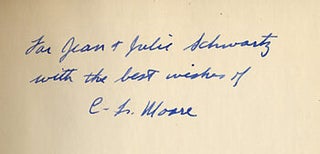 For Jean + Julie Schwartz
with the best wishes of
C. L. Moore